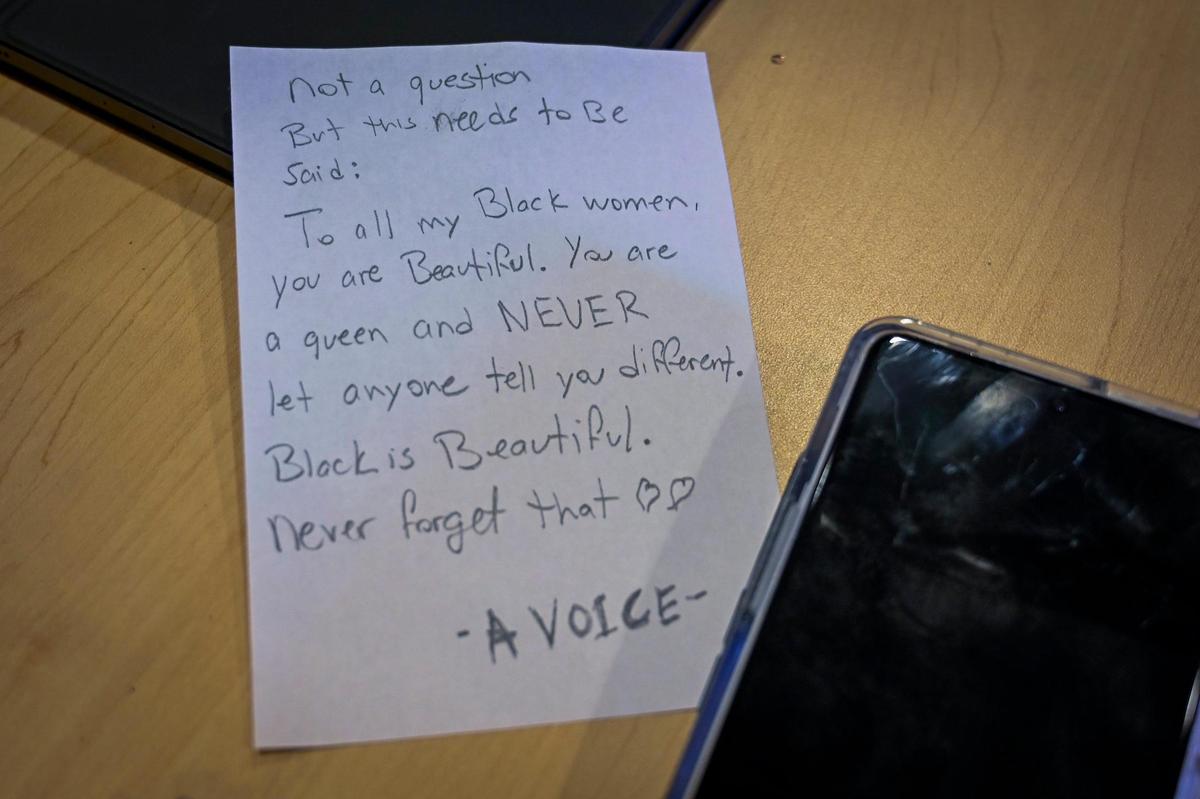 Not a question
But this needs to Be
Said:
To all my Black women,
you are Beautiful. You are
a queen and NEVER
let anyone tell you different.
Black is Beautiful.
Never forget that ♡♡
-A VOICE-